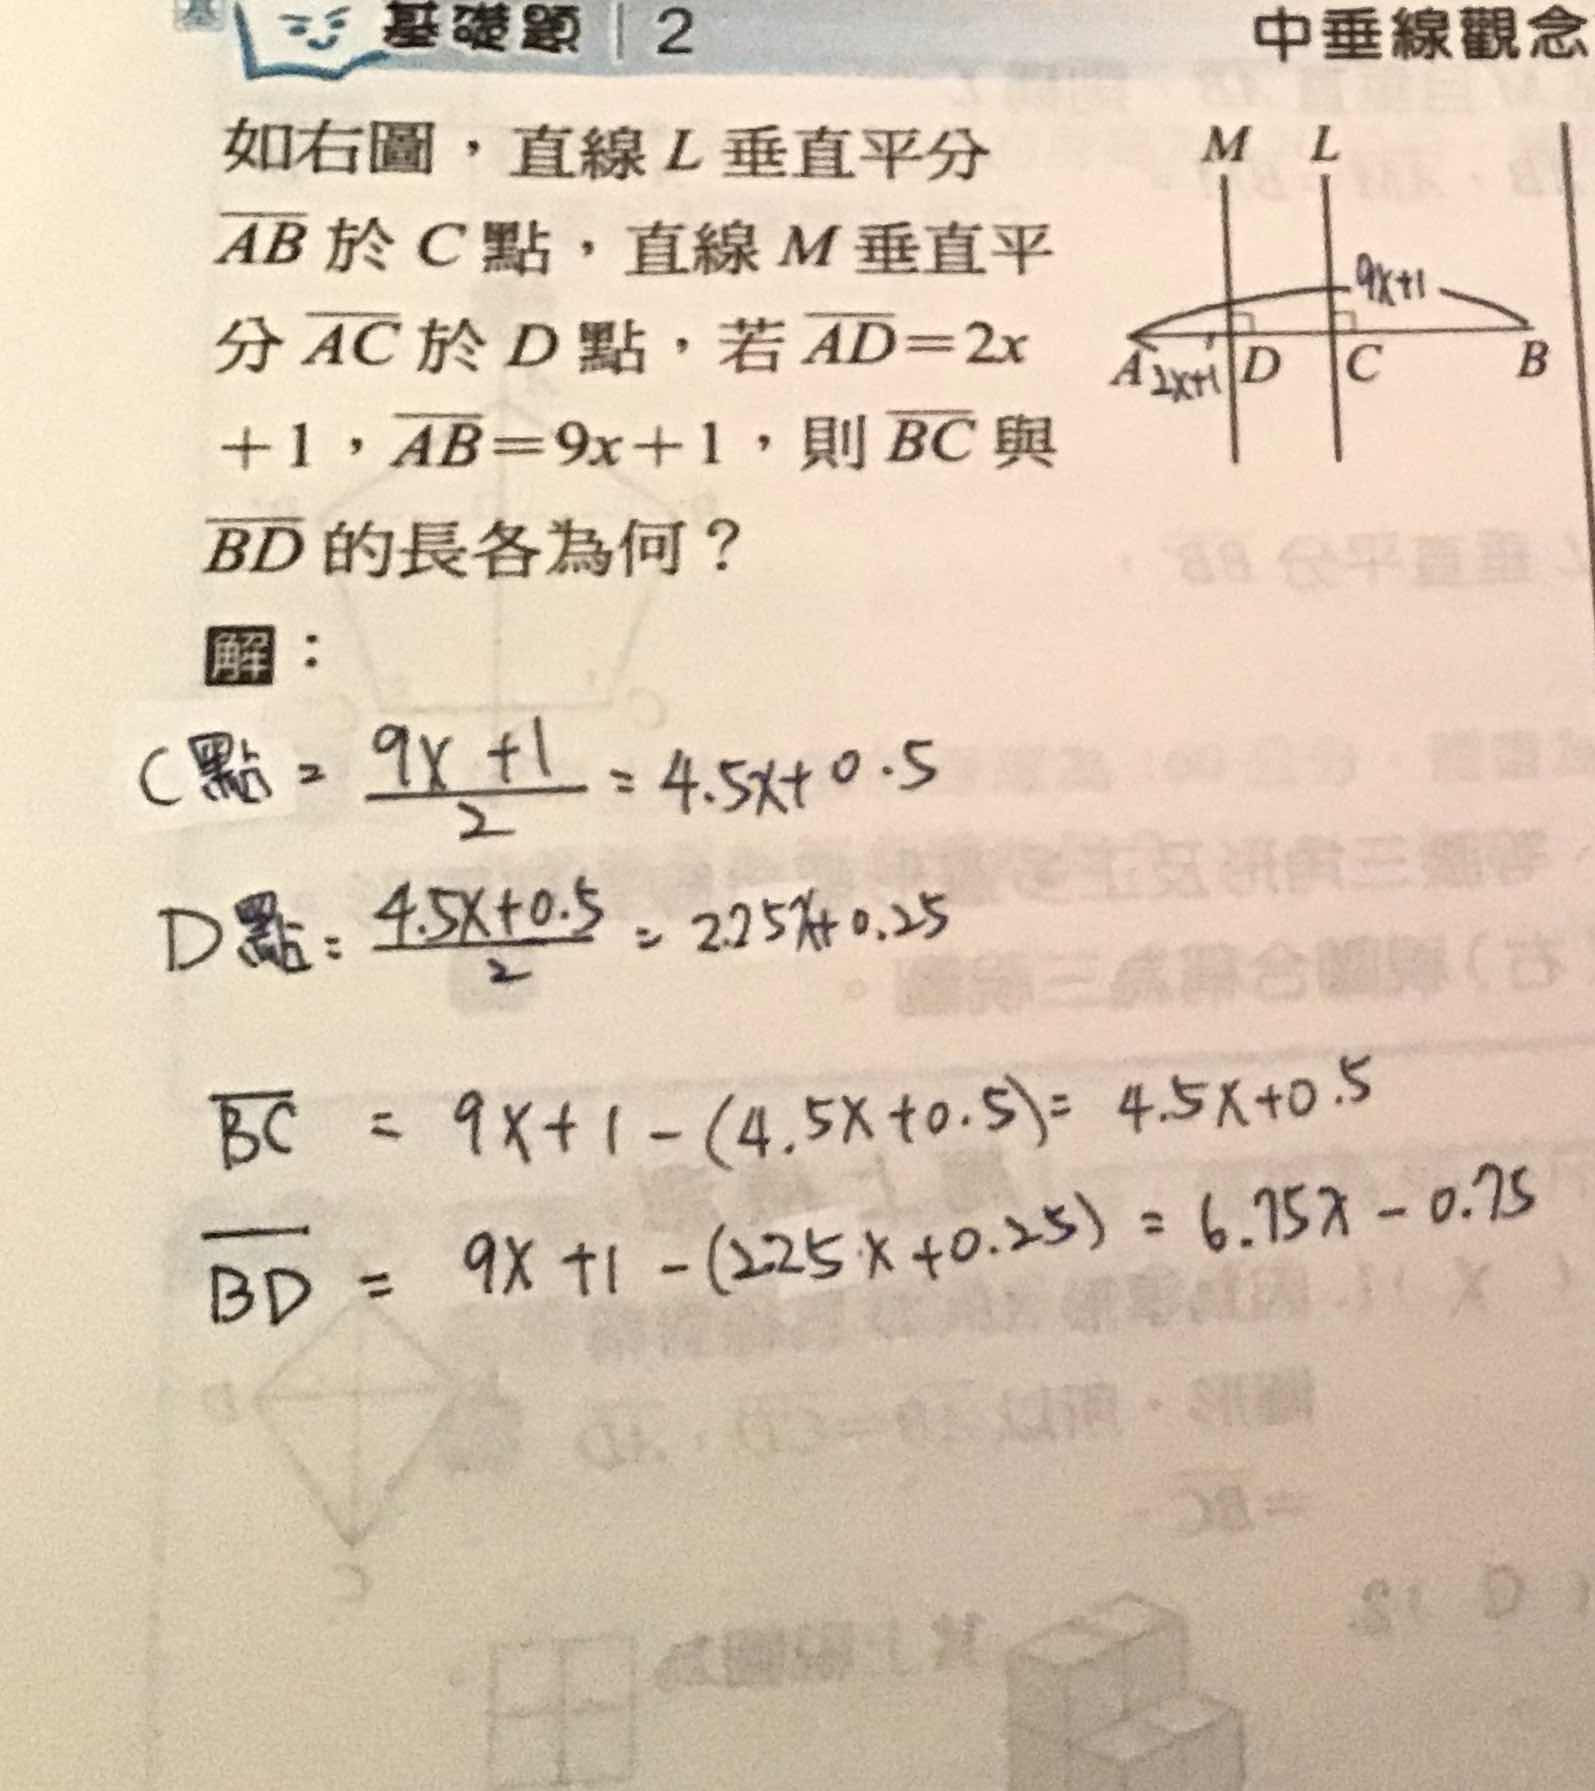 基礎題 | 2
中垂線觀念
如右圖，直線 L 垂直平分
AB 於 C 點，直線 M 垂直平
分 AC 於 D 點，若 AD＝2x
＋1，AB＝9x＋1，則 BC 與
BD 的長各為何？
M L
9x+1
A 2x+1 D C B
解：
C點 = 9x+1/2 = 4.5x+0.5
D點 = 4.5x+0.5/2 = 2.25x+0.25
BC = 9x+1-(4.5x+0.5) = 4.5x+0.5
BD = 9x+1-(2.25x+0.25) = 6.75x-0.75